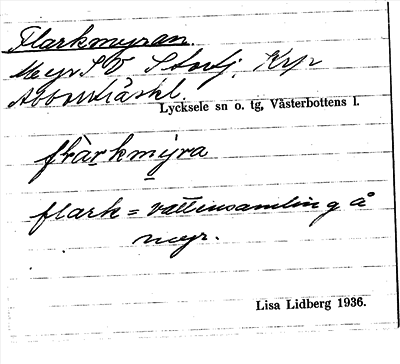 Flarkmyran.
Myr S V Storfj, Krp
Abborrtjäskl.
Lycksele sn o. tg, Västerbottens l.
flàrkmýra
flark = vattensamling å
myr.
Lisa Lidberg 1936.